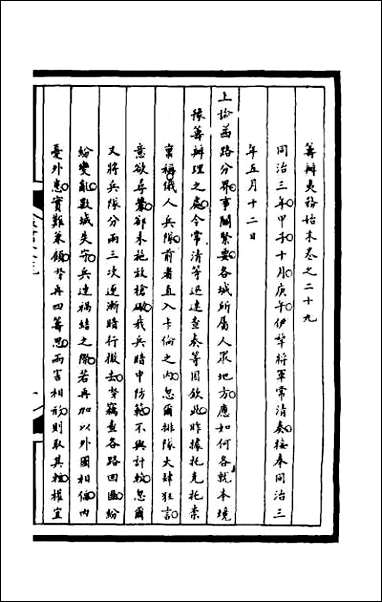 籌辦夷務始末卷之二十九
同治三年甲子十月庚午伊犂將軍常清奏接奉同治三
年五月十二日
上諭西路分界事關緊要各城所屬人眾地方應如何各就本境
豫籌辦理之處令常清等迅速查奏等因欽此昨據托克托柰
稟稱俄人兵隊前者直入卡倫之內忽爾排隊大肆狂言
意欲尋釁卻未施放槍礮我兵暗中防範不與計較忽爾
又將兵隊分兩三次逐漸暗行撤去督竊查各路回匪紛
紛變亂數城失守兵連禍結之際若再加以外國相偪內
憂外患實難兼顧督再四籌思兩害相形則取其輕權宜